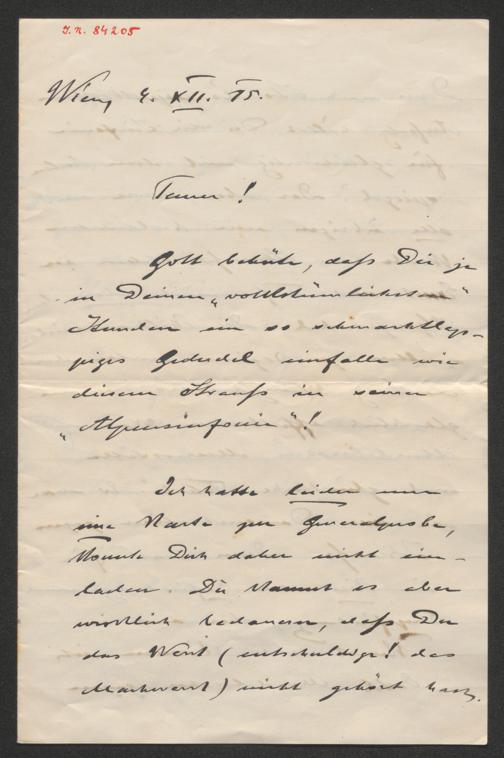 J.N. 84205
Wien, 4. XII. 15.
Teurer!
Gott behüte, daß Dir je
in Deinen „volkstümlichsten“
Stunden ein so schmachtlap-
piges Gedudel einfalle wie
diesem Strauß in seiner
„Alpensinfonie“!
Ich hatte leider nur
eine Karte zur Generalprobe,
konnte Dich daher nicht ein-
laden. Du kannst es aber
wirklich bedauern, daß Du
das Werk (entschuldige! das
Machwerk) nicht gehört hast.